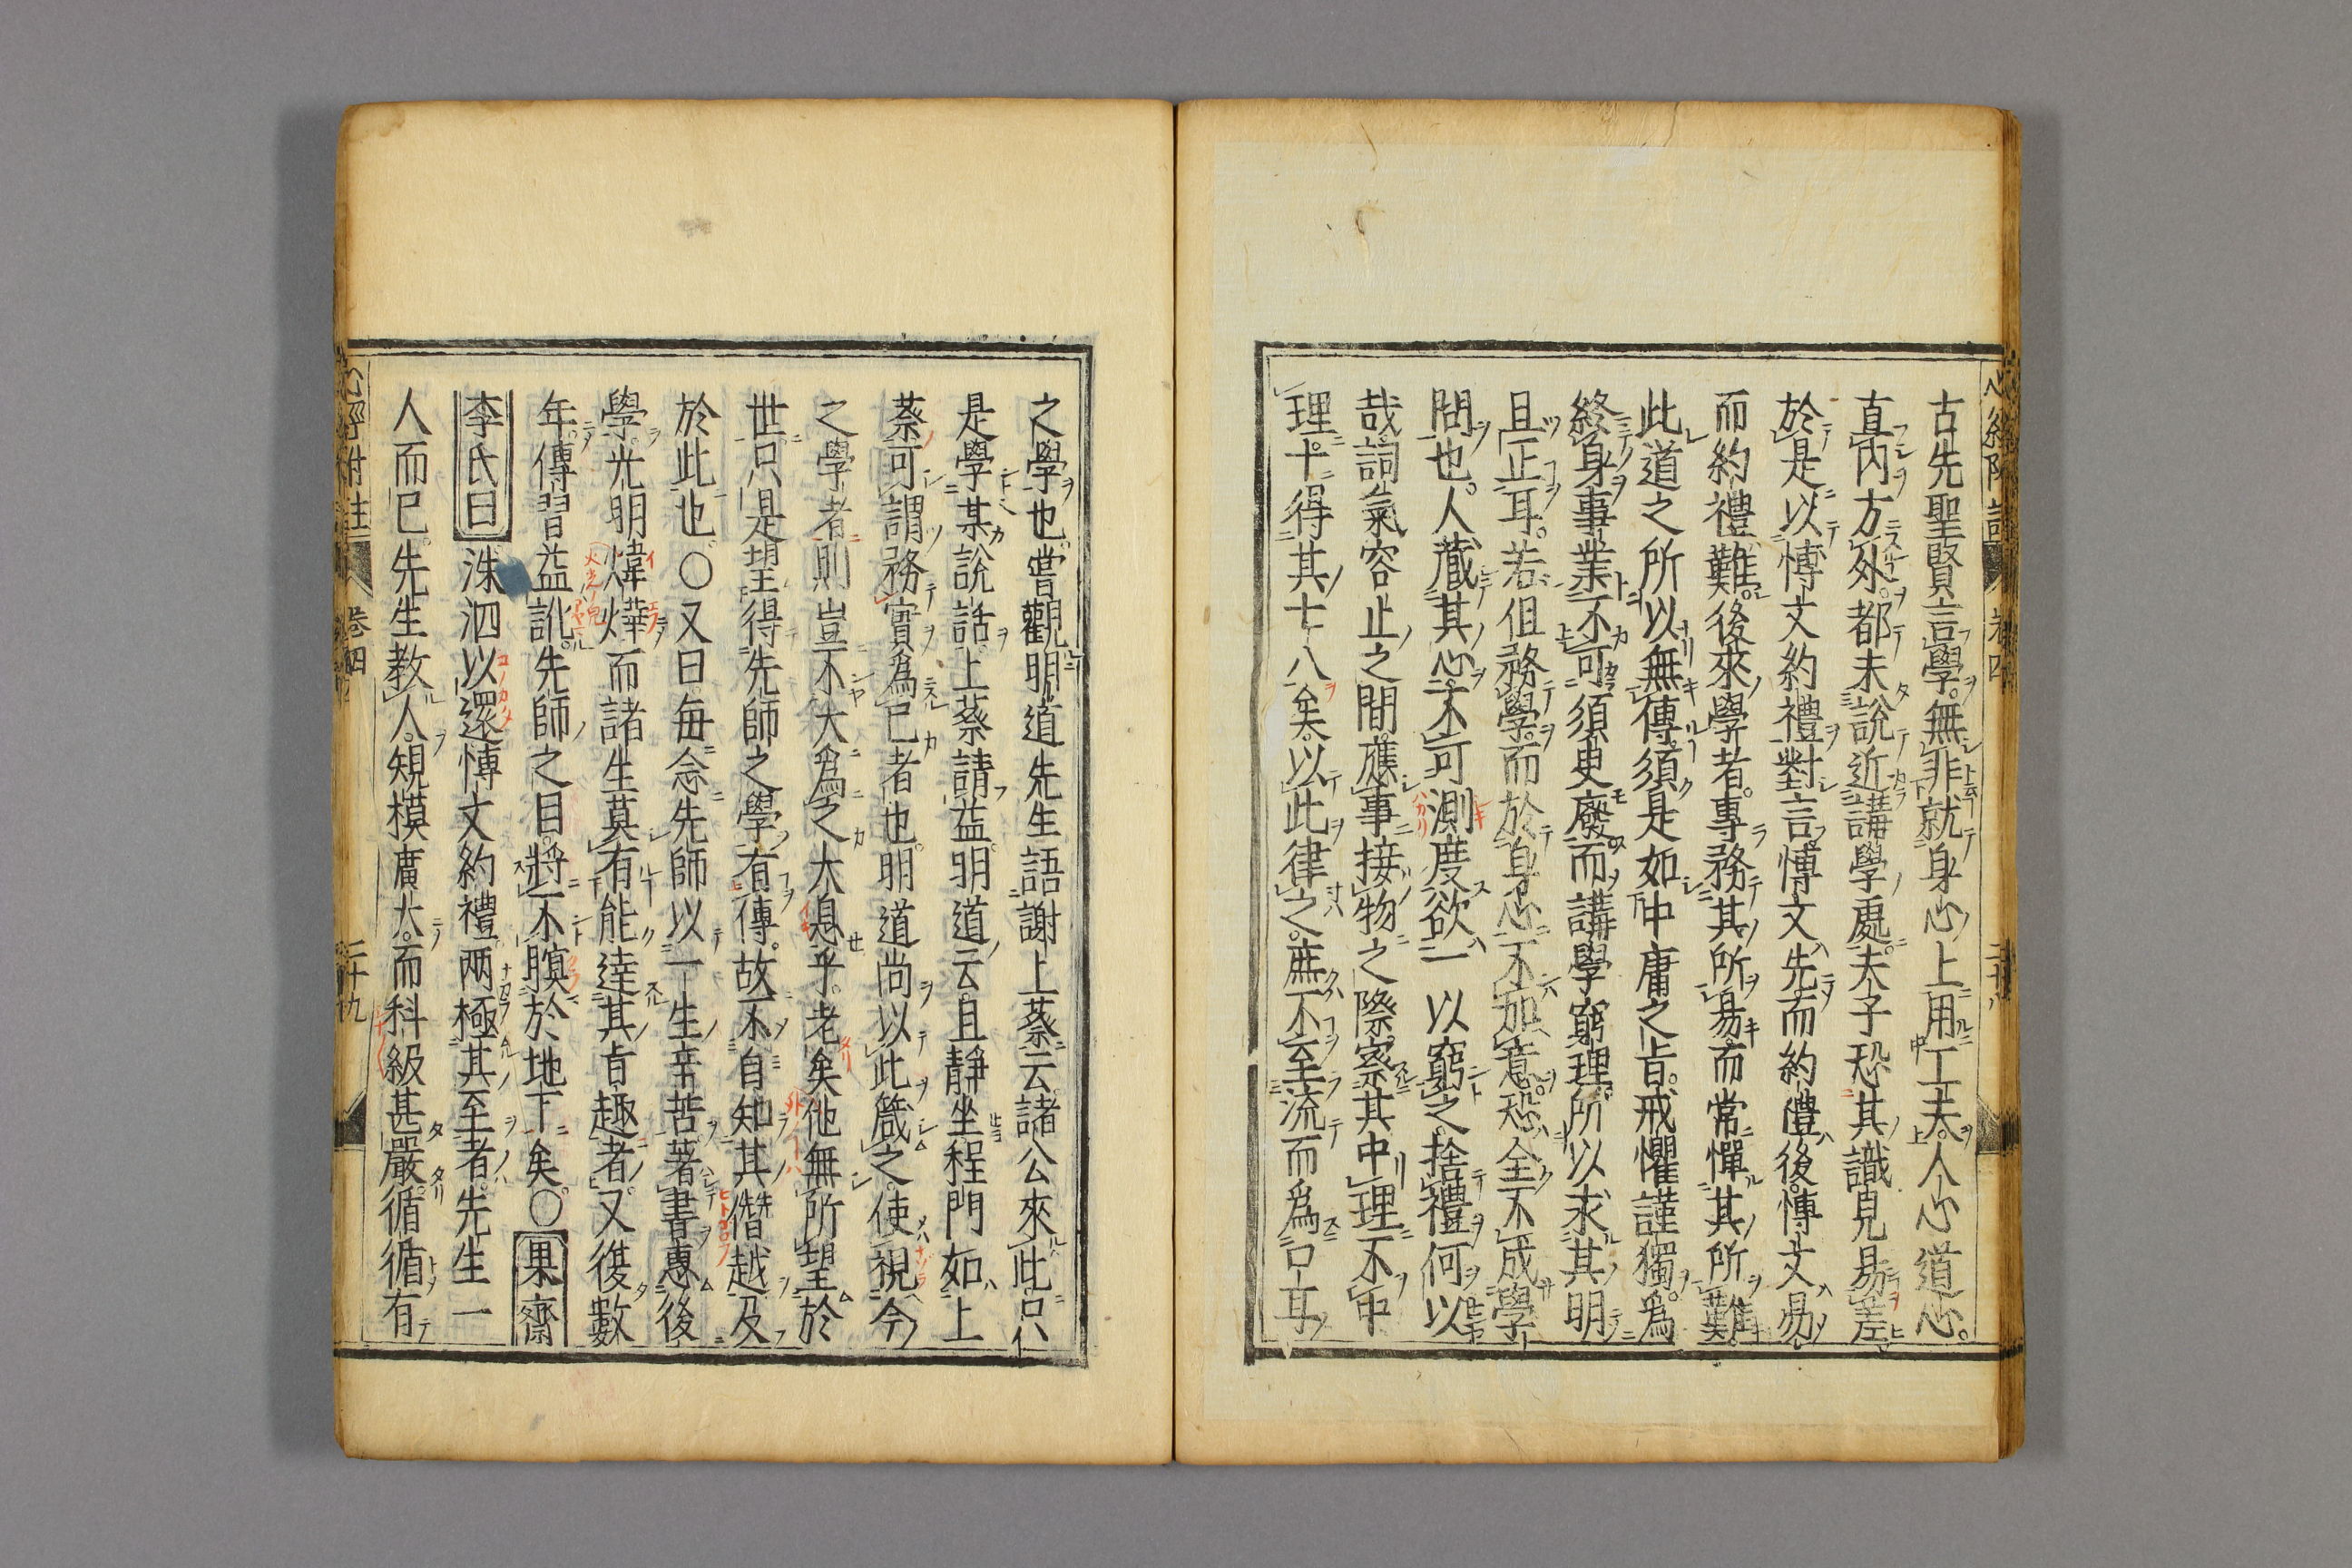 古先聖賢言學無非就身心上用工夫人心道心
直內方外都未說近講學處夫子恐其識見易差
於是以博文約禮對言博文先而約禮後博文易
而約禮難後來學者專務其所易而常憚其所難
此道之所以無傳須是如中庸之旨戒懼謹獨爲
終身事業不可須臾廢而講學窮理所以求其明
且正耳若但務學而於身心不加意恐全不成學
問也人藏其心不可測度欲一以窮之捨禮何以
哉詞氣容止之間應事接物之際察其中理不中
理十得其七八矣以此律之庶不至流而爲口耳
之學也嘗觀明道先生語謝上蔡云諸公來此只
是學某說話上蔡請益明道云且靜坐程門如上
蔡可謂務實爲已者也明道尚以此箴之使視今
之學者則豈不大爲之大息乎老矣他無所望於
世只是望得先師之學有傳故不自知其僭越及
於此也○又曰每念先師以一生辛苦著書惠後
學光明煒燁而諸生莫有能達其旨趣者又復數
年傳習益訛先師之目將不瞑於地下矣○果齋
李氏曰洙泗以還博文約禮兩極其至者先生一
人而已先生教人規模廣大而科級甚嚴循循有
心經附註 卷四 二十九